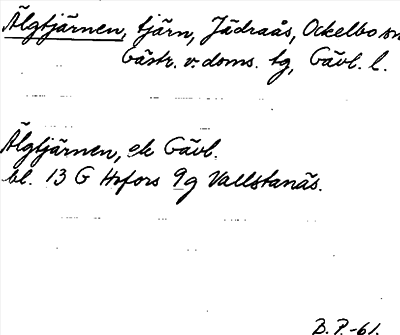 Älgtjärnen, tjärn, Jädraås, Ockelbo sn
Gästr. v. doms. tg, Gävl. l.
Älgtjärnen, ek Gävl.
bl. 13 G Hofors 9g Vallstanäs.
B.P.-61.